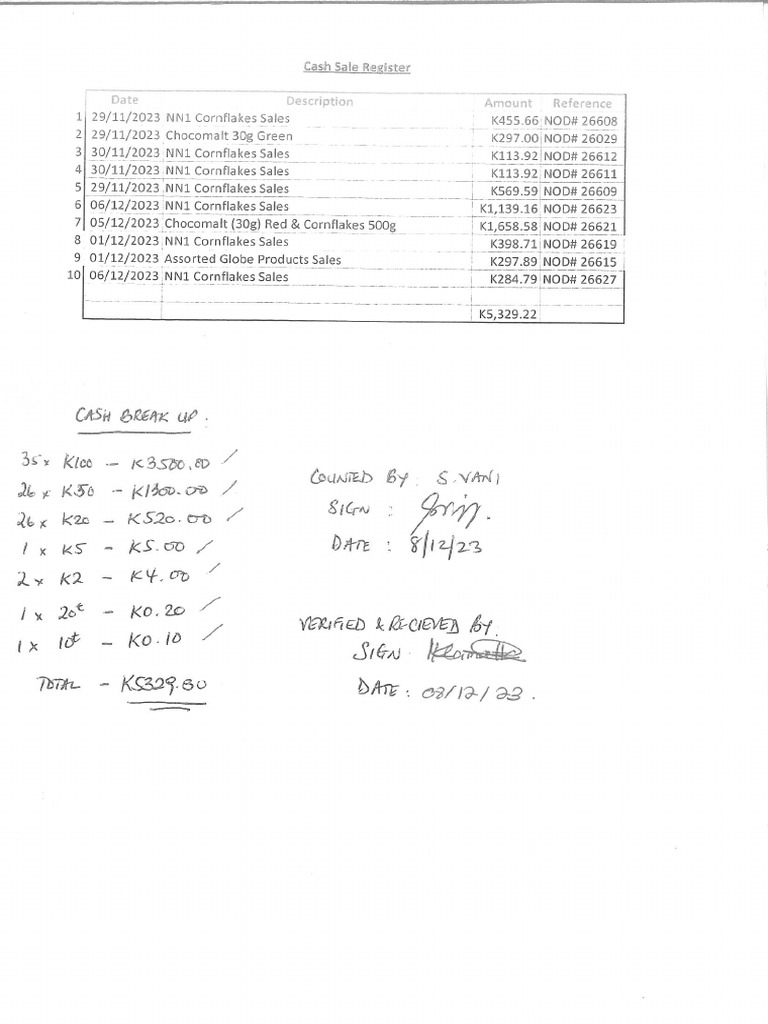 Cash Sale Register
Date Description Amount Reference
1 29/11/2023 NN1 Cornflakes Sales K455.66 NOD# 26608
2 29/11/2023 Chocomalt 30g Green K297.00 NOD# 26029
3 30/11/2023 NN1 Cornflakes Sales K113.92 NOD# 26612
4 30/11/2023 NN1 Cornflakes Sales K113.92 NOD# 26611
5 29/11/2023 NN1 Cornflakes Sales K569.59 NOD# 26609
6 06/12/2023 NN1 Cornflakes Sales K1,139.16 NOD# 26623
7 05/12/2023 Chocomalt (30g) Red & Cornflakes 500g K1,658.58 NOD# 26621
8 01/12/2023 NN1 Cornflakes Sales K398.71 NOD# 26619
9 01/12/2023 Assorted Globe Products Sales K297.89 NOD# 26615
10 06/12/2023 NN1 Cornflakes Sales K284.79 NOD# 26627
K5,329.22
CASH BREAK UP.
35 x K100 - K3500.00
26 x K50 - K1300.00
26 x K20 - K520.00
1 x K5 - K5.00
2 x K2 - K4.00
1 x 20t - K0.20
1 x 10t - K0.10
TOTAL - K5329.30
COUNTED BY: S.VANI
SIGN :
DATE : 8/12/23
VERIFIED & RECIEVED BY.
SIGN
DATE: 08/12/23.